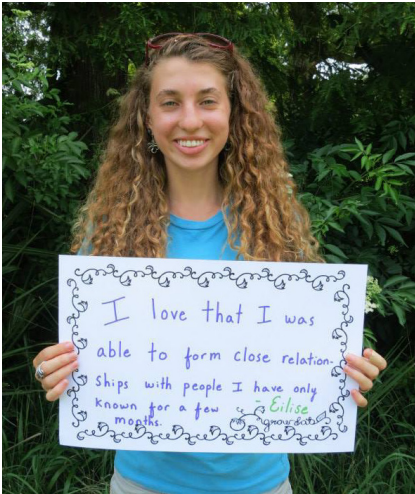 I love that I was
able to form close relation-
ships with people I have only
known for a few
months.
- Eilise